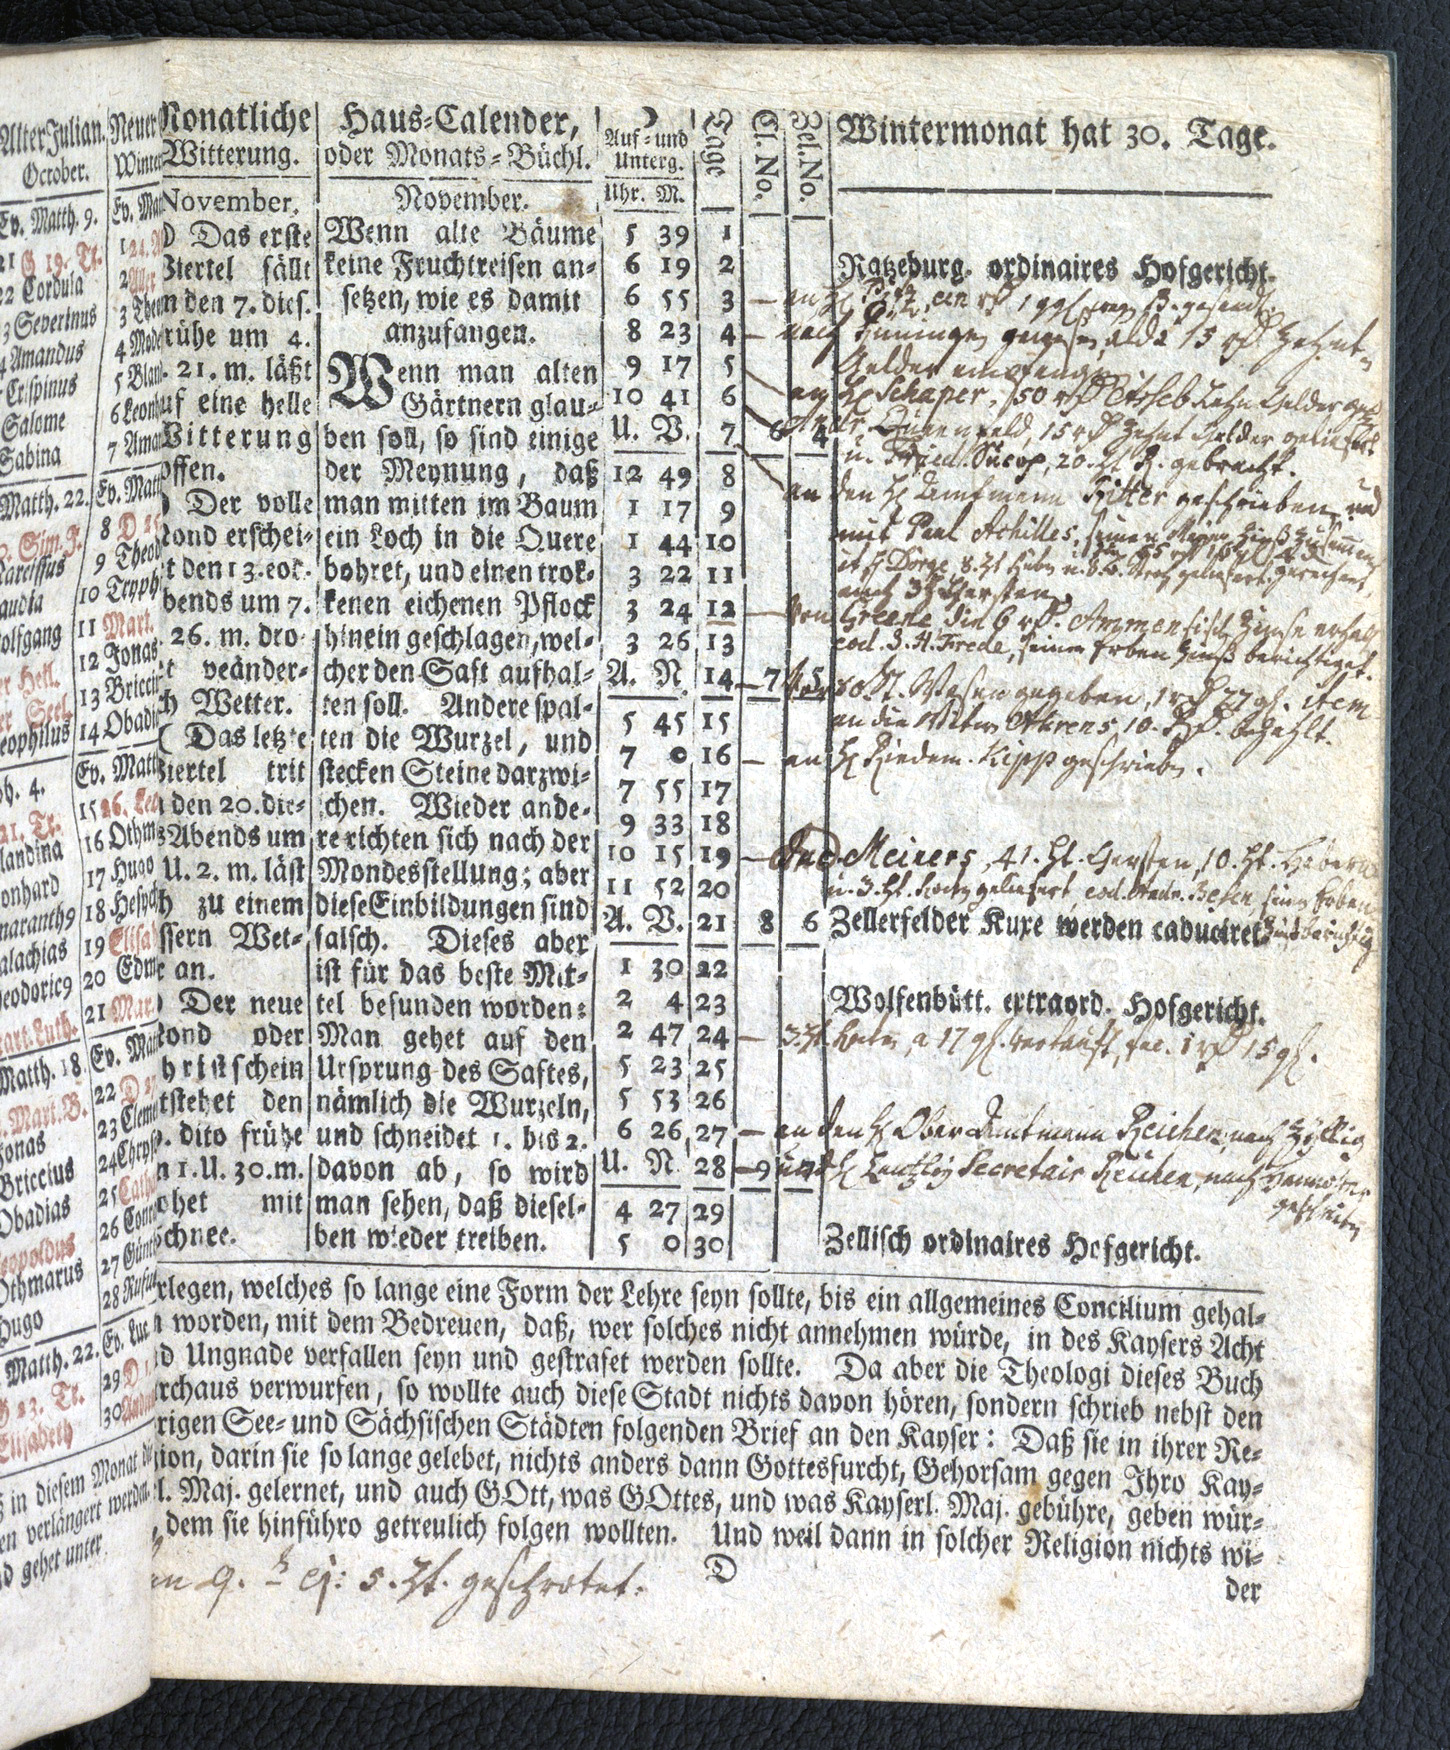 Alter Julian.
October.
Ev. Matth. 9.
21 G 19. Tr.
22 Cordula
3 Severinus
4 Amandus
Crispinus
Salome
Sabina
Matth. 22.
Sim. J.
Narcissus
audia
olfgang
er Heil.
er Seel.
eophilus
oh. 4.
21. Tr.
landina
onhard
maranth9
alachias
eodoric9
art. Luth.
Matth. 18
Mart. B.
Jonas
Briccius
Obadias
eopoldus
Othmarus
Hugo
Matth. 22.
G 23. Tr.
Elisabeth
in diesem Monat
en verlängert werden
d gehet unter
Neuer
Winter
Ev. Mat
1 24.
2 Aller
3 Theo
4 Mode
5 Blan
6 Leonh
7 Ama
Ev. Matt
8 D 25
9 Theod
10 Tryph
11 Mart.
12 Jonas
13 Briccit
14 Obadi
Ev. Matt
15 26. Leo
16 Othm
17 Hugo
18 Hesych
19 Elisa
20 Edm
21 Mar.
Ev. Mat
22 D 27
23 Cleme
24 Chryso
25 Catha
26 Conra
27 Günth
28 Rufus
Ev. Luc
29 D 1.
30 Andr
Monatliche
Witterung.
November.
) Das erste
Viertel fällt
n den 7. dies.
rühe um 4.
21. m. läßt
uf eine helle
Witterung
offen.
) Der volle
Mond erschei-
t den 13. eod.
bends um 7.
26. m. dro-
t veänder-
ch Wetter.
( Das letzte
Viertel trit
den 20. die-
s Abends um
U. 2. m. läst
h zu einem
ssern Wet-
e an.
) Der neue
Mond oder
hristschein
tstehet den
. dito frühe
n 1. U. 30. m.
ohet mit
chnee.
Haus-Calender,
oder Monats-Büchl.
November.
Wenn alte Bäume
keine Fruchtreisen an-
setzen, wie es damit
anzufangen.
Wenn man alten
Gärtnern glau-
ben soll, so sind einige
der Meynung, daß
man mitten im Baum
ein Loch in die Quere
bohret, und einen trok-
kenen eichenen Pflock
hinein geschlagen, wel-
cher den Saft aufhal-
ten soll. Andere spal-
ten die Wurzel, und
stecken Steine darzwi-
schen. Wieder ande-
re richten sich nach der
Mondesstellung; aber
diese Einbildungen sind
falsch. Dieses aber
ist für das beste Mit-
tel befunden worden:
Man gehet auf den
Ursprung des Saftes,
nämlich die Wurzeln,
und schneidet 1. bis 2.
davon ab, so wird
man sehen, daß diesel-
ben wieder treiben.
☽
Auf- und
Unterg.
Uhr. M.
Tage
Cl. No.
Zel. No.
5 39 1
6 19 2
6 55 3
8 23 4
9 17 5
10 41 6
U. V. 7 6 4
12 49 8
1 17 9
1 44 10
3 22 11
3 24 12
3 26 13
A. N. 14 7 5
5 45 15
7 0 16
7 55 17
9 33 18
10 15 19
11 52 20
A. V. 21 8 6
1 30 22
2 4 23
2 47 24
5 23 25
5 53 26
6 26 27
U. N. 28 9 7
4 27 29
5 0 30
Wintermonat hat 30. Tage.
Ratzeburg. ordinaires Hofgericht.
Gelder empfangen
an H Schaper, 50
Zehnt Gelder geliefert
u. Fried. Sucop, 20. gebracht.
an den H Amtmann Ritter geschrieben, und
mit Paul Achilles, seinen
Greene die 6
eod. J. H. Frede, seinen Erben Zinß berichtiget.
Wasen gegeben, item
Ahrens, 10. bezahlt.
an H Riedem. Kipp geschrieben.
And Meiners, 41. Ht. Gersten, 10. Ht. Habern
u. 3. Ht. geliefert, eod.
Zellerfelder Kuxe werden caduciret.
Wolfenbütt. extraord. Hofgericht.
a 17 gl. verkauft, fac. 1 15 gl.
an den H Ober Amtmann Reichen, nach
und H Secretair Reichen, nach Hannover
geschrieben
Zellisch ordinaires Hofgericht.
rlegen, welches so lange eine Form der Lehre seyn sollte, bis ein allgemeines Concilium gehal-
n worden, mit dem Bedreuen, daß, wer solches nicht annehmen würde, in des Kaysers Acht
nd Ungnade verfallen seyn und gestrafet werden sollte. Da aber die Theologi dieses Buch
rchaus verwurfen, so wollte auch diese Stadt nichts davon hören, sondern schrieb nebst den
rigen See- und Sächsischen Städten folgenden Brief an den Kayser: Daß sie in ihrer Re-
gion, darin sie so lange gelebet, nichts anders dann Gottesfurcht, Gehorsam gegen Ihro Kay-
l. Maj. gelernet, und auch GOtt, was GOttes, und was Kayserl. Maj. gebühre, geben wür-
, dem sie hinführo getreulich folgen wollten. Und weil dann in solcher Religion nichts wi-
D
der
5. Ht. geschrotet.